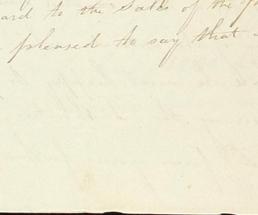 ard to the Sales of the
pleased to say that